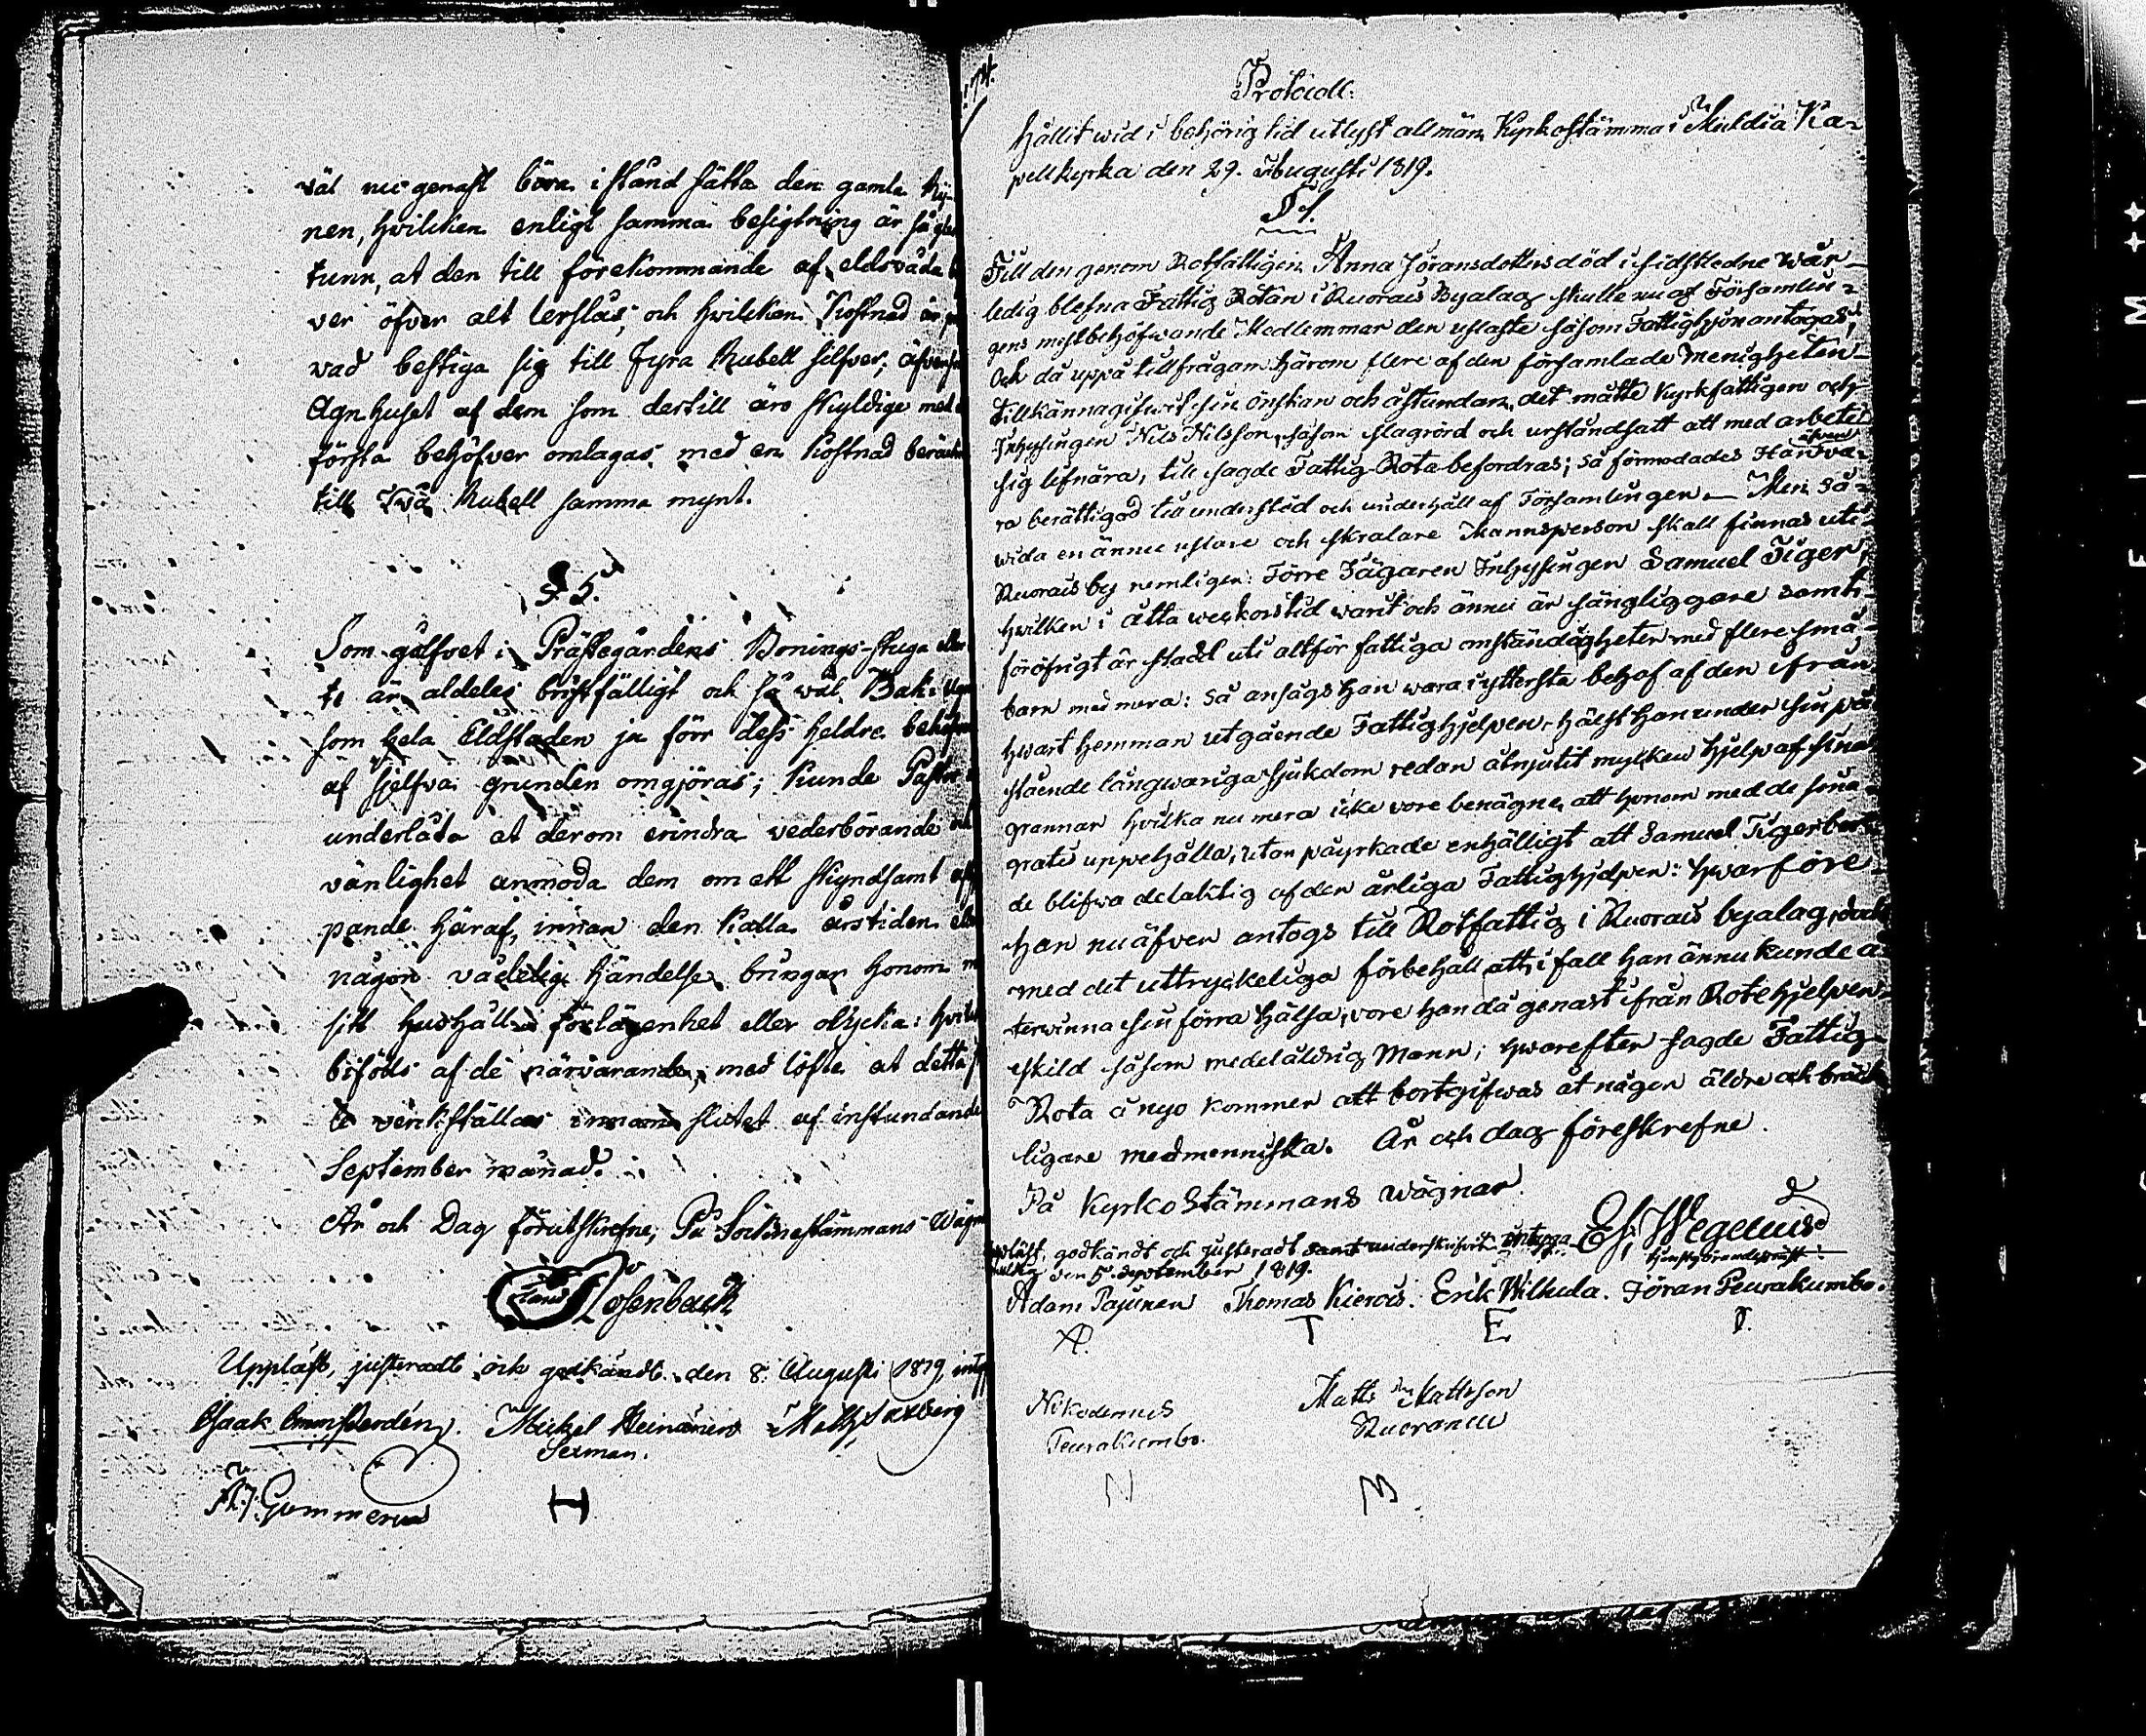 väl nu genast böra i stånd sätta den gamla
nen, hvilken enligt samma besigtning är så
tunn, at den till förekommande af eldsvåda
ver öfver alt lerslås, och hvilken Kostnad är
vad bestiga sig till Fyra Rubell silfver; äfven
Agnhuset af dem som dertill äro skyldige med
första behöfver omlagas med en Kostnad
till Två Rubell samma mynt.
§ 5.
Som golfvet i Prästegårdens Bonings-stuga
är aldeles bristfälligt och så väl Bak-
som hela Eldstaden ju förr dess heldre
af sjelfva grunden omgjöras; kunde
underlåta at derom erindra vederbörande
vänlighet anmoda dem om ett skyndsamt
pande häraf, innan den kalla årstiden
någon vådelig händelse bringar honom
sitt hushåll i förlägenhet eller olycka:
biföds af de närvarande, med löfte at detta
verkställas innan slutet af instundande
September månad.
År och Dag förutskrefne, På Socknestämmans Wägn
Rosenback
Uppläst, justeradt och godkändt den 8. Augusti 1819,
Isaak
Mickel Heinänen
Sexman.
Gummerus
H
Protocoll
hållit wid i behörig tid utlyst allmän Kyrkostämma i Muldia Ka-
pellkyrka den 29. Augusti 1819.
§ 1.
Till den genom Rotfattigen Anna Jöransdotters död i sidstledne wår
ledig blefna Fattig Rotan i Ruorais Byalag skulle nu af Församlin-
gens mest behöfwande Medlemmar den uslaste såsom Fattighjon antagas;
Och då uppå tillfrågan härom flere af den församlade Menigheten
tillkännagifwit sin önskan och åstundan, det måtte Kyrkfattigen och
Inhysingen Nils Nilsson, såsom slagrörd och urståndsatt att med arbete
sig lifnära, till sagde Fattig-Rota befordras; så förmodades Han äfven va-
ra berättigad till understöd och underhåll af Församlingen. Men så-
wida en ännu uslare och skralare Mansperson skall finnas uti
Ruorais by nemligen: Förre Jägaren Inhysingen Samuel Tiger,
hvilken i åtta weckors tid warit och ännu är sängliggare samt
föröfrigt är stadd uti altför fattiga omständigheter med flere små
barn med mera: så ansågs Han wara i yttersta behof af den ifrån
hwart hemman utgående Fattighjelpen, hälst Han under sin på
stående långwariga sjukdom redan åtnjutit mycken hjelp af sina
grannar hvilka nu mera icke vore benägne, att honom med de sina
gratis uppehålla, utan påyrkade enhälligt att Samuel Tiger bor-
de blifwa delaktig af den årliga Fattighjelpen: hwarföre
Han nu äfven antogs till Rotfattig i Ruorais byalag, dock
med det uttryckeliga förbehåll att, i fall han ännu kunde å-
terwinna sin förra hälsa, vore han då genast ifrån Rotehjelpen
skild såsom medelåldrig Mann; hwarefter sagde Fattig-
Rota å nyo kommer att bortgifwas åt någon äldre och bräck-
ligare medmenniska. År och dag föreskrefne.
På Kyrkostämmans wägnar
E J Wegelius
tjenstgörande präst
Upläst, godkändt och justeradt samt underskrifvit intyga
den 5. September 1819.
Adam Pajunen Thomas Kierois. Erik Wilkula. Jöran Peurakumbo.
AP. T E J.
Nikodemus
Peurakumbo.
Matts Mattsson
Ruoranen
N M